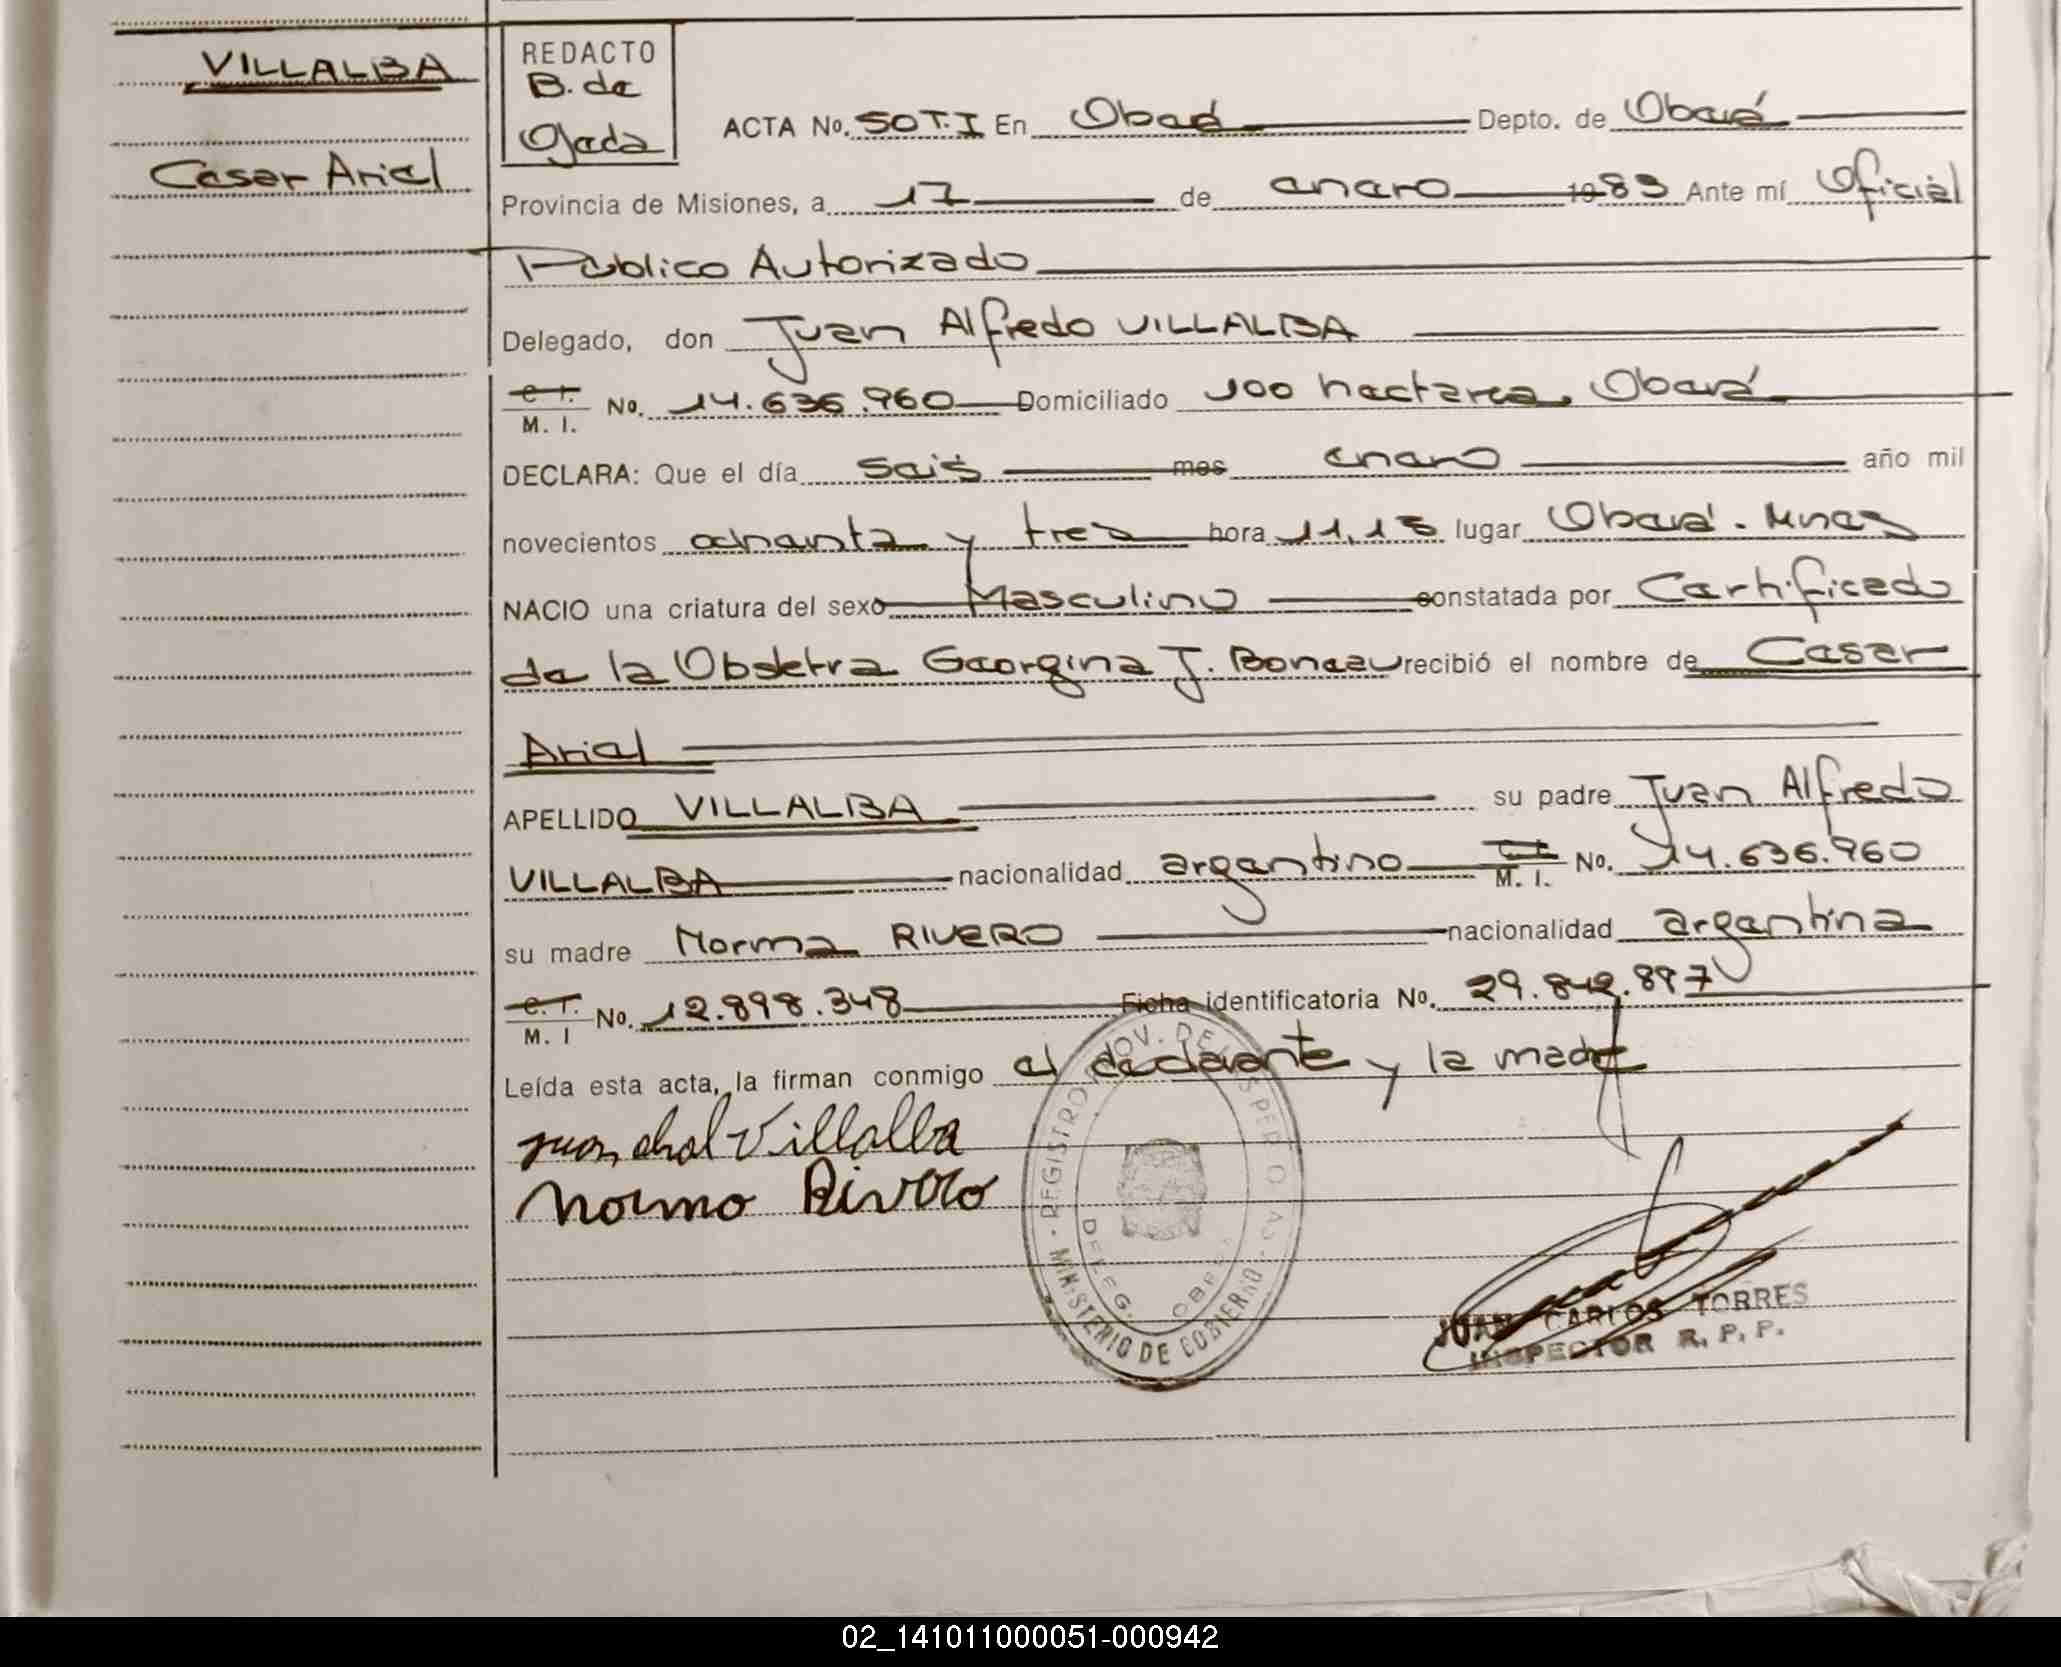 VILLALBA
Cesar Ariel
REDACTO
B. de
Ojeda
ACTA No. 50 T. I En Oberá Depto. de Oberá
Provincia de Misiones, a 17 de enero 1983 Ante mí Oficial
Público Autorizado
Delegado, don Juan Alfredo VILLALBA
C. I.
M. I. No. 14.636.960 Domiciliado 100 hectarea, Oberá
DECLARA: Que el día seis mes enero año mil
novecientos ochenta y tres hora 11,15 lugar Oberá - Mnes
NACIO una criatura del sexo Masculino constatada por Certificado
de la Obstetra Georgina J. recibió el nombre de Cesar
Ariel
APELLIDO VILLALBA su padre Juan Alfredo
VILLALBA nacionalidad argentino C. I. M. I. No. 14.636.960
su madre Norma RIVERO nacionalidad argentina
C. I.
M. I No. 12.898.348 Ficha identificatoria No. 29.842.897
Leída esta acta, la firman conmigo el declarante y la madre
Villalba
Norma Rivero
REGISTRO PROV. DE LAS PERSONAS
DELEG. OBERA
MINISTERIO DE GOBIERNO
JUAN CARLOS TORRES
INSPECTOR R. P. P.
02_141011000051-000942